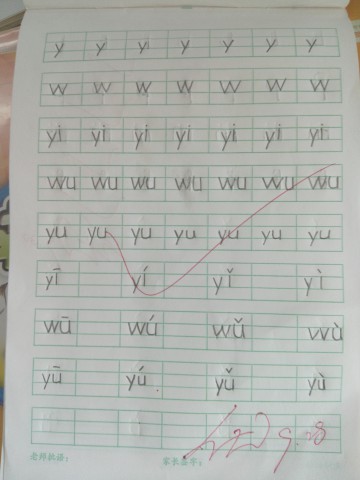 y y y y y y y
w w w w w w w
yi yi yi yi yi yi yi
wu wu wu wu wu wu wu
yu yu yu yu yu yu yu
yī yí yǐ yì
wū wú wǔ wù
yū yú yǔ yù
老师批语: 家长签字: